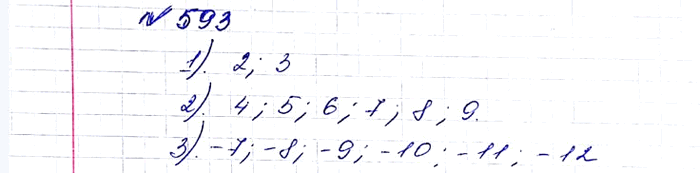 № 593
1). 2; 3
2). 4; 5; 6; 7; 8; 9.
3). -7; -8; -9; -10; -11; -12